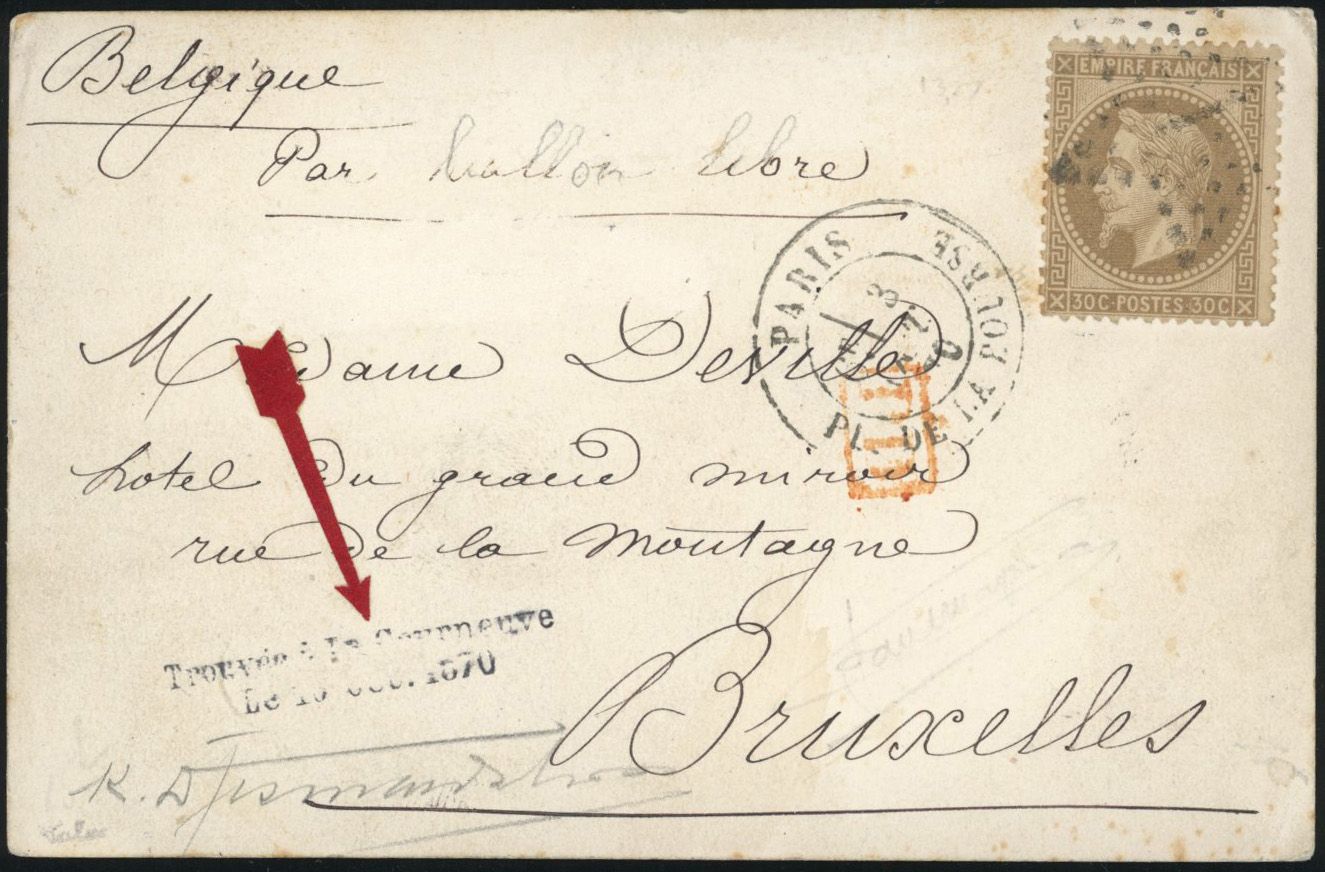 Belgique
Par ballon libre
EMPIRE FRANÇAIS
30 C · POSTES · 30 C
PARIS
PL. DE LA BOURSE
Madame Deville
hotel du grand miroir
rue de la Montagne
Bruxelles
Trouvée à la Courneuve
Le oct. 1870
K. D